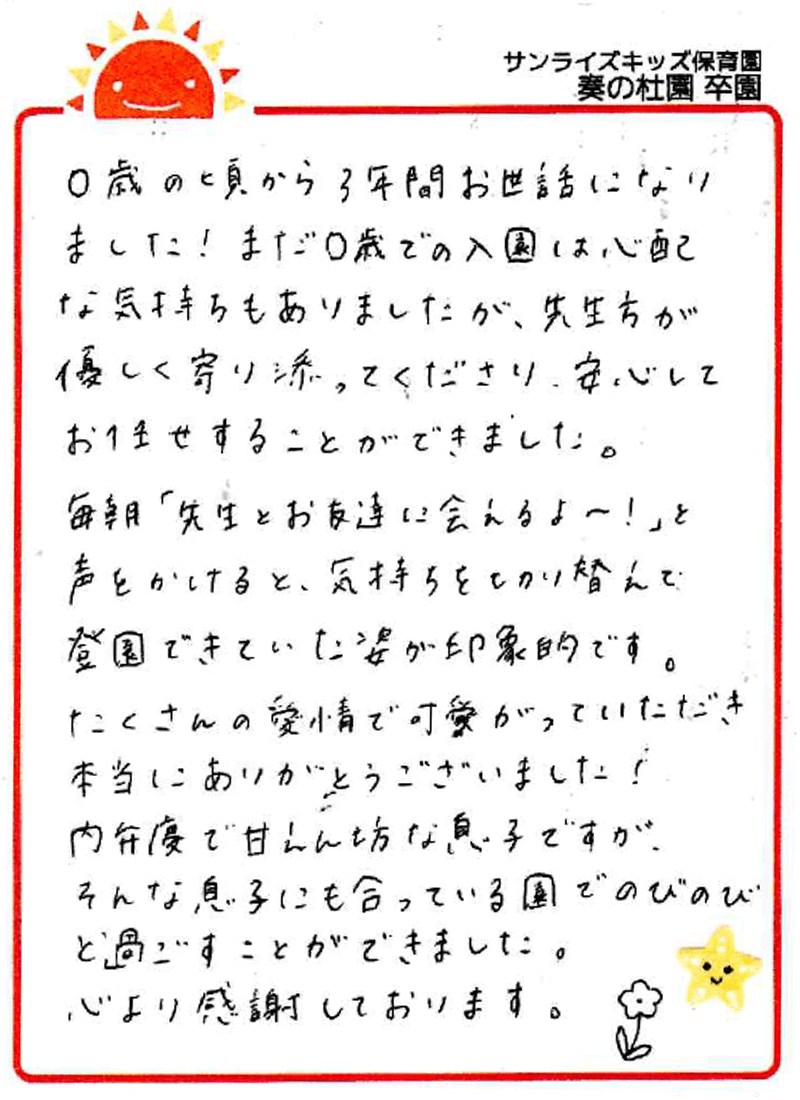 サンライズキッズ保育園
奏の杜園 卒園
0歳の頃から3年間お世話になり
ました！まだ0歳での入園は心配
な気持ちもありましたが、先生方が
優しく寄り添ってくださり、安心して
お任せすることができました。
毎朝「先生とお友達に会えるよ～！」と
声をかけると、気持ちをきり替えて
登園できていた姿が印象的です。
たくさんの愛情で可愛がっていただき
本当にありがとうございました！
内弁慶で甘えん坊な息子ですが、
そんな息子にも合っている園でのびのび
と過ごすことができました。
心より感謝しております。